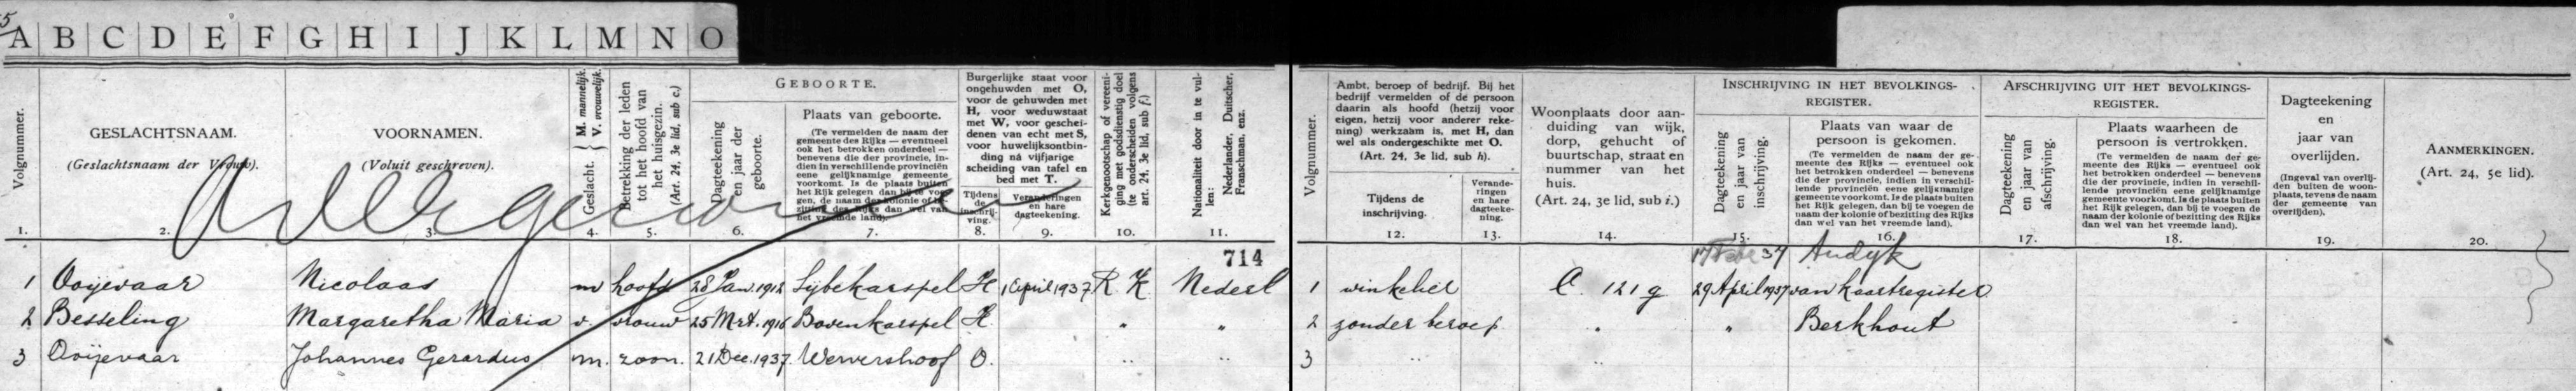 A B C D E F G H I J K L M N O
Volgnummer.
1.
GESLACHTSNAAM.
(Geslachtsnaam der Vrouw).
2.
VOORNAMEN.
(Voluit geschreven).
3.
Geslacht. { M. mannelijk. V. vrouwelijk.
4.
Betrekking der leden tot het hoofd van het huisgezin. (Art. 24, 3e lid, sub c.)
5.
GEBOORTE.
Dagteekening en jaar der geboorte.
6.
Plaats van geboorte.
(Te vermelden de naam der
gemeente des Rijks — eventueel
ook het betrokken onderdeel —
benevens die der provincie, in-
dien in verschillende provinciën
eene gelijknamige gemeente
voorkomt. Is de plaats buiten
het Rijk gelegen dan bij te voe-
gen, de naam der kolonie of be-
zitting des Rijks dan wel van
het vreemde land).
7.
Burgerlijke staat voor
ongehuwden met O,
voor de gehuwden met
H, voor weduwstaat
met W, voor geschei-
denen van echt met S,
voor huwelijksontbin-
ding ná vijfjarige
scheiding van tafel en
bed met T.
Tijdens
de
inschrij-
ving.
8.
Veranderingen
en hare
dagteekening.
9.
Kerkgenootschap of vereeni-
ging met godsdienstig doel
(te onderscheiden volgens
art. 24, 3e lid, sub f.)
10.
Nationaliteit door in te vul-
len: Nederlander, Duitscher,
Franschman, enz.
11.
714
1 Ooijevaar Nicolaas m hoofd 28 Jan. 1912 Sijbekarspel H 1 April 1937 R. K. Nederl
2 Besseling Margaretha Maria v. vrouw 25 Mrt. 1916 Bovenkarspel H. " "
3 Ooijevaar Johannes Gerardus m. zoon. 21 Dec. 1937. Wervershoof O. " "
Volgnummer.
Ambt, beroep of bedrijf. Bij het
bedrijf vermelden of de persoon
daarin als hoofd (hetzij voor
eigen, hetzij voor anderer reke-
ning) werkzaam is, met H, dan
wel als ondergeschikte met O.
(Art. 24, 3e lid, sub h).
Tijdens de
inschrijving.
12.
Verande-
ringen
en hare
dagteeke-
ning.
13.
Woonplaats door aan-
duiding van wijk,
dorp, gehucht of
buurtschap, straat en
nummer van het
huis.
(Art. 24, 3e lid, sub i.)
14.
INSCHRIJVING IN HET BEVOLKINGS-
REGISTER.
Dagteekening en jaar van inschrijving.
15.
Plaats van waar de
persoon is gekomen.
(Te vermelden de naam der ge-
meente des Rijks — eventueel ook
het betrokken onderdeel — benevens
die der provincie, indien in verschil-
lende provinciën eene gelijknamige
gemeente voorkomt. Is de plaats buiten
het Rijk gelegen, dan bij te voegen de
naam der kolonie of bezitting des Rijks
dan wel van het vreemde land).
16.
AFSCHRIJVING UIT HET BEVOLKINGS-
REGISTER.
Dagteekening en jaar van afschrijving.
17.
Plaats waarheen de
persoon is vertrokken.
(Te vermelden de naam der ge-
meente des Rijks — eventueel ook
het betrokken onderdeel — benevens
die der provincie, indien in verschil-
lende provinciën eene gelijknamige
gemeente voorkomt. Is de plaats buiten
het Rijk gelegen, dan bij te voegen de
naam der kolonie of bezitting des Rijks
dan wel van het vreemde land).
18.
Dagteekening
en
jaar van
overlijden.
(Ingeval van overlij-
den buiten de woon-
plaats, tevens de naam
der gemeente van
overlijden).
19.
AANMERKINGEN.
(Art. 24, 5e lid).
20.
37 Andijk
1 winkelier C. 121 g 29 April 1937 van kaartregister
2 zonder beroep " " Berkhout
3 " "